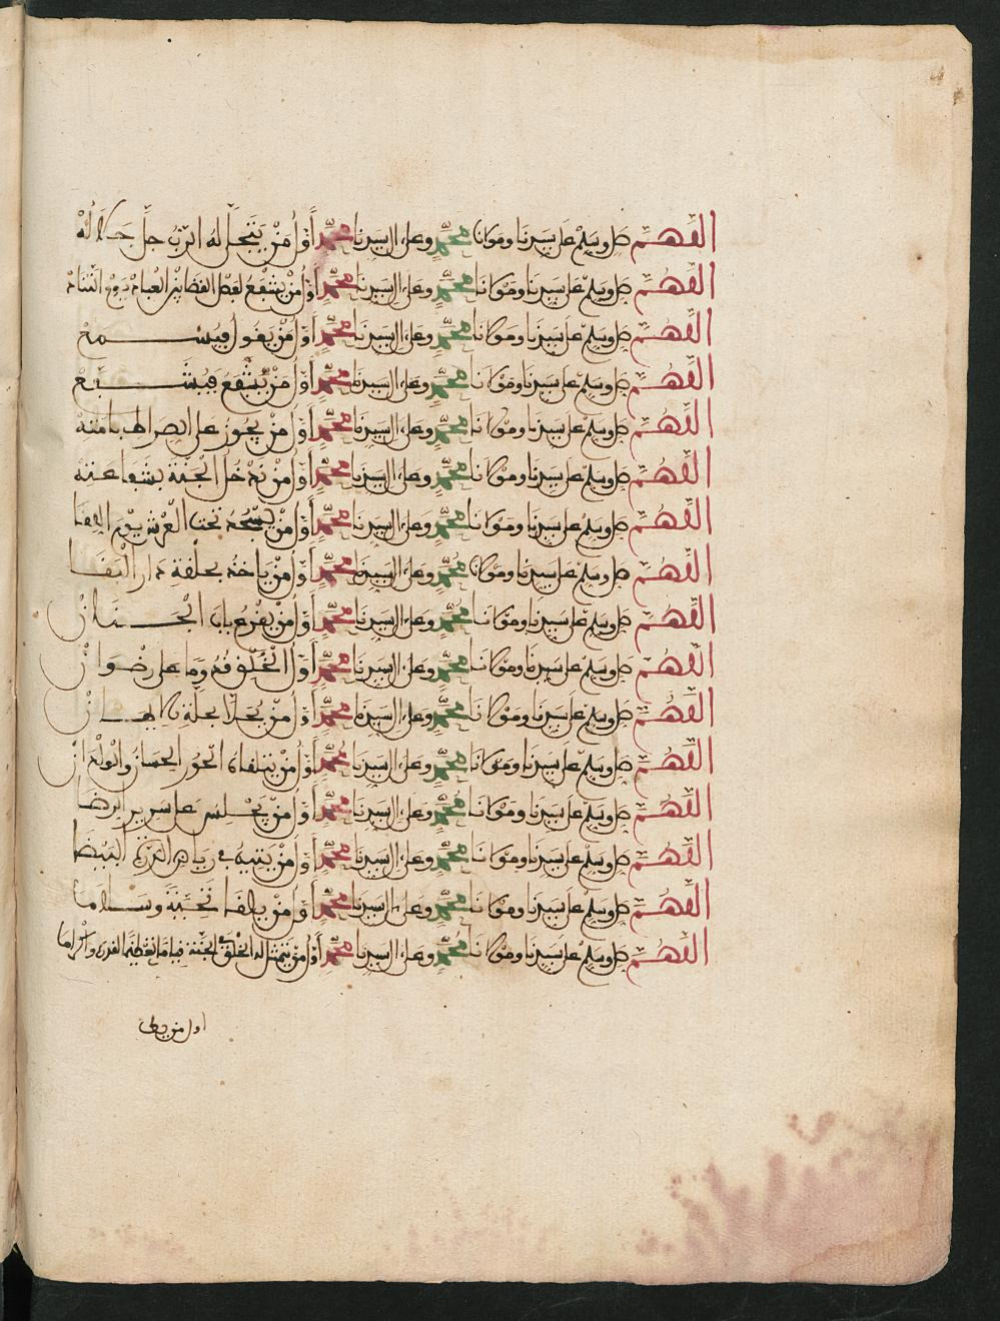 اللهم صل وسلم على سيدنا ومولانا محمد وعلى ءال سيدنا محمد أول من يتجلى له الرب جل جلاله
اللهم صل وسلم على سيدنا ومولانا محمد وعلى ءال سيدنا محمد أول من يشفع لفصل القضا بين العباد يوم التناد
اللهم صل وسلم على سيدنا ومولانا محمد وعلى ءال سيدنا محمد أول من يقول فيسمع
اللهم صل وسلم على سيدنا ومولانا محمد وعلى ءال سيدنا محمد أول من يشفع فيشفع
اللهم صل وسلم على سيدنا ومولانا محمد وعلى ءال سيدنا محمد أول من يجوز على الصراط بامته
اللهم صل وسلم على سيدنا ومولانا محمد وعلى ءال سيدنا محمد أول من يدخل الجنة بشفاعته
اللهم صل وسلم على سيدنا ومولانا محمد وعلى ءال سيدنا محمد أول من يسجد تحت العرش يوم اللقا
اللهم صل وسلم على سيدنا ومولانا محمد وعلى ءال سيدنا محمد أول من ياخذ بحلقة دار البقا
اللهم صل وسلم على سيدنا ومولانا محمد وعلى ءال سيدنا محمد أول من يقرع باب الجنان
اللهم صل وسلم على سيدنا ومولانا محمد وعلى ءال سيدنا محمد أول الخلق قدوما على رضوان
اللهم صل وسلم على سيدنا ومولانا محمد وعلى ءال سيدنا محمد أول من يحلا بحلة
اللهم صل وسلم على سيدنا ومولانا محمد وعلى ءال سيدنا محمد أول من يتلقاه الحور الحسان والولدان
اللهم صل وسلم على سيدنا ومولانا محمد وعلى ءال سيدنا محمد أول من يجلس على سرير الرضا
اللهم صل وسلم على سيدنا ومولانا محمد وعلى ءال سيدنا محمد أول من في رياض الدرة البيضا
اللهم صل وسلم على سيدنا ومولانا محمد وعلى ءال سيدنا محمد أول من يلقا تحية وسلاما
اللهم صل وسلم على سيدنا ومولانا محمد وعلى ءال سيدنا محمد أول من يتمثل له الخلق في الجنة قياما
اول من يطا